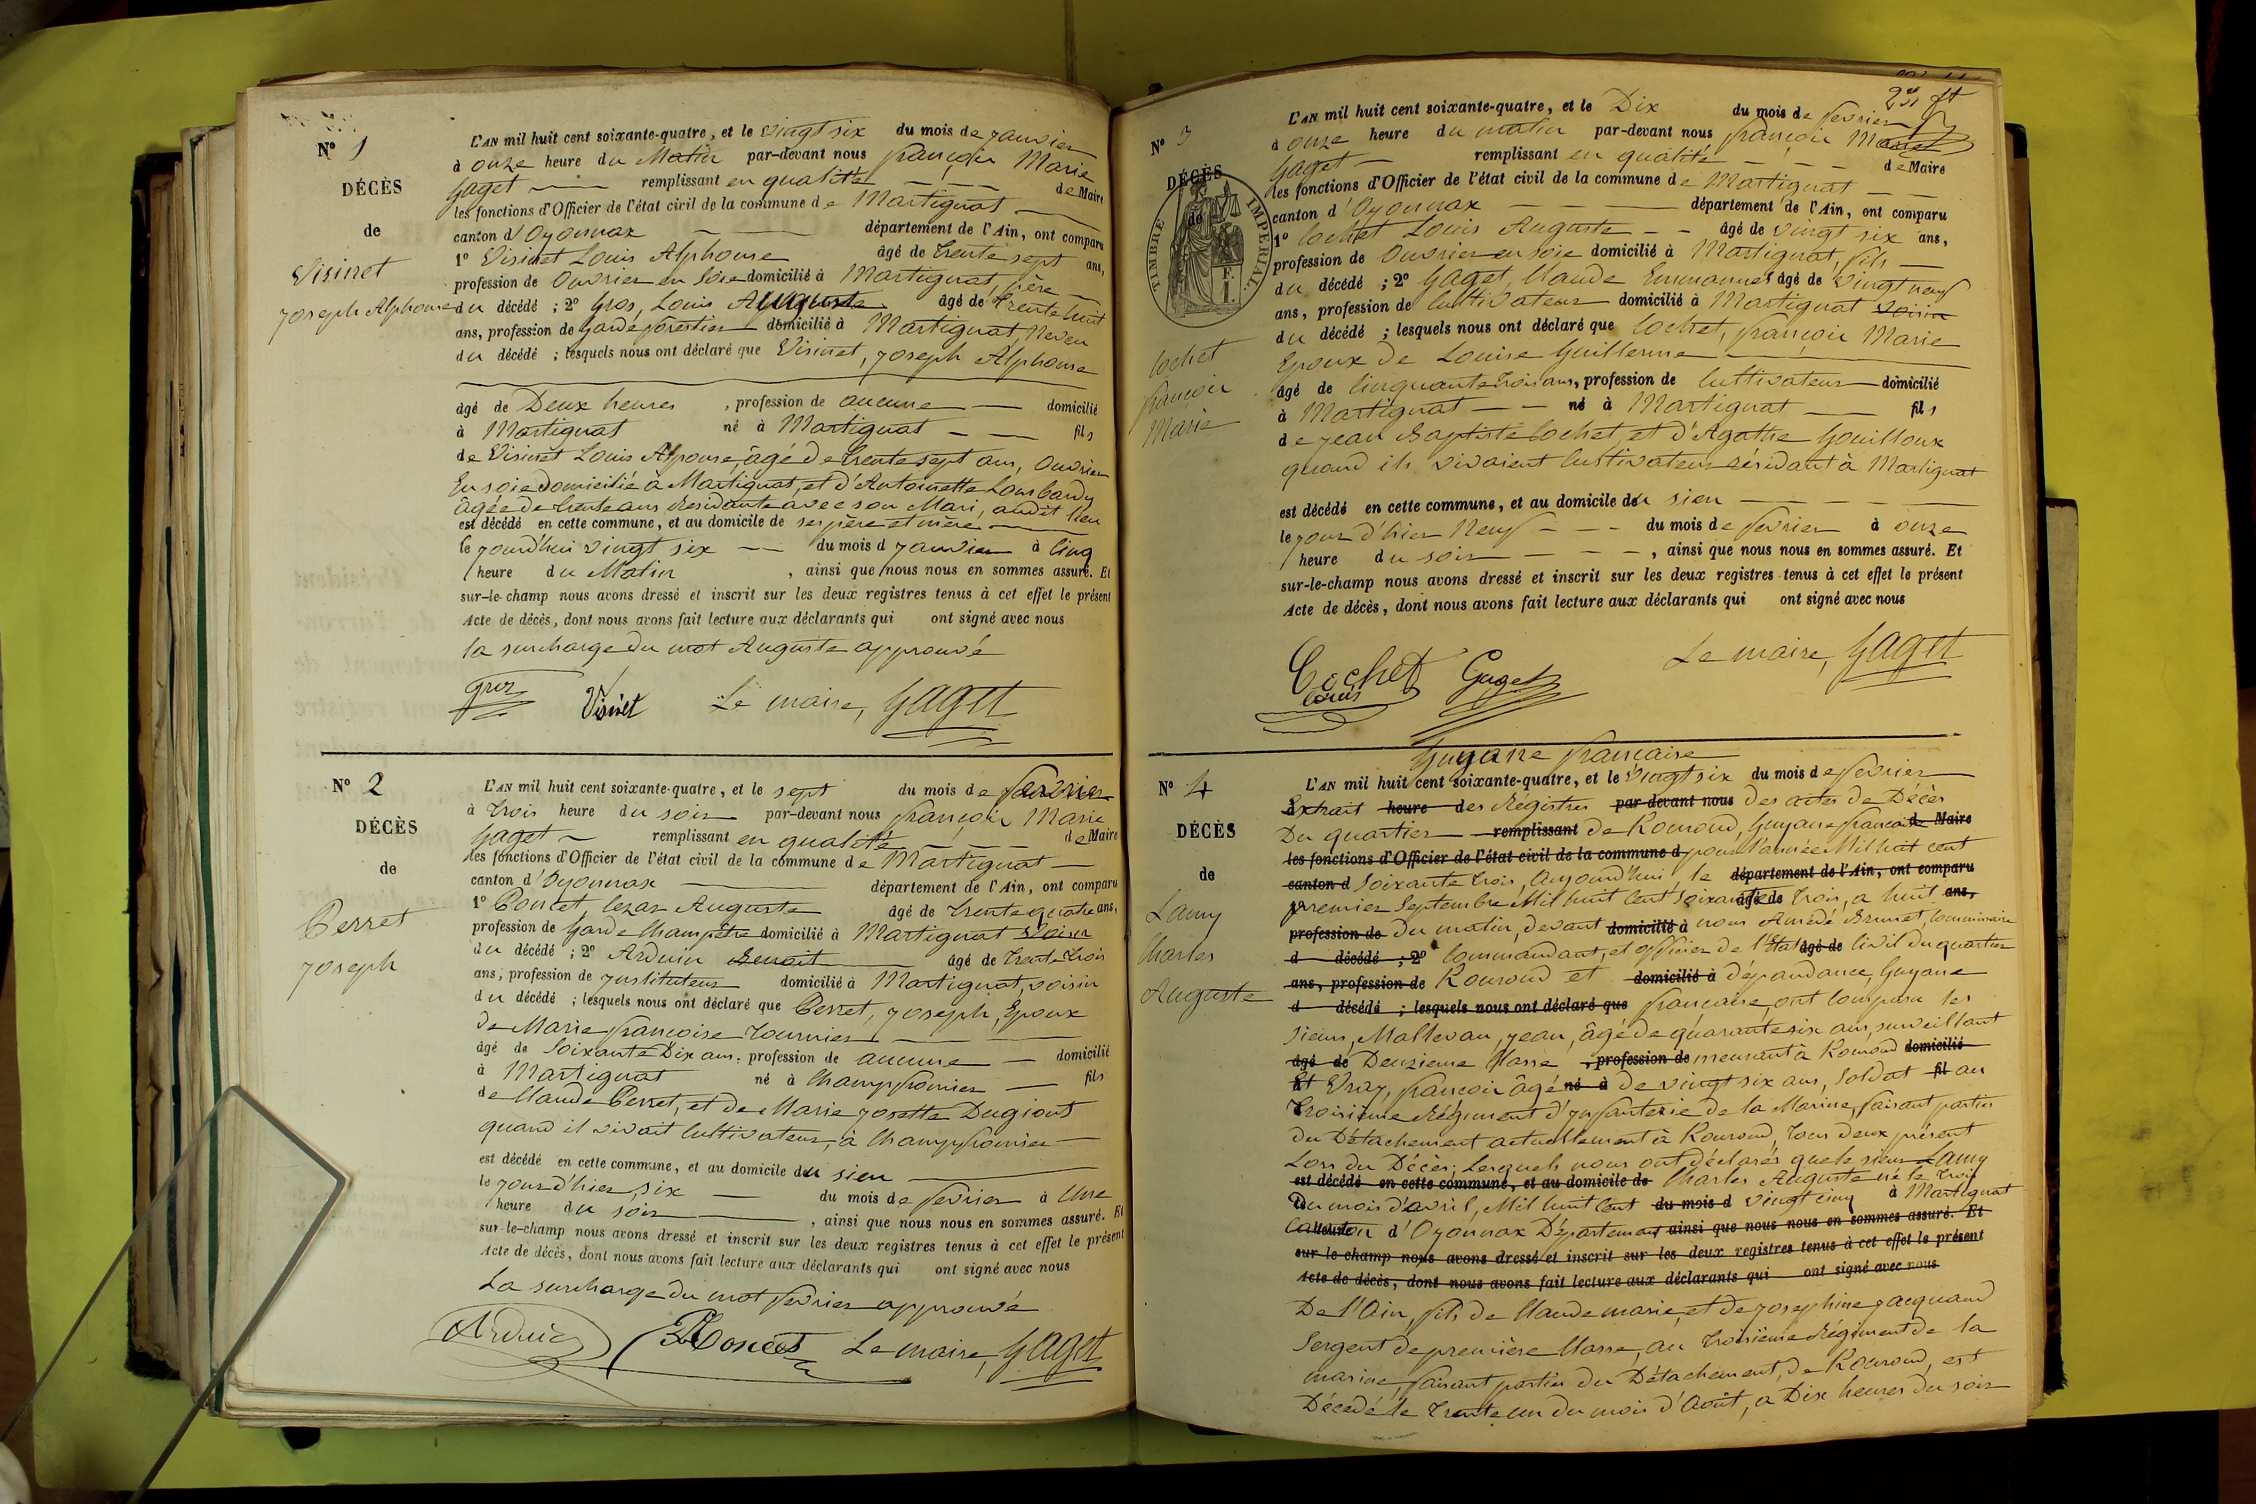 N° 1
DÉCÈS
de
Visinet
Joseph Alphonse
L'AN mil huit cent soixante-quatre, et le vingt six du mois de janvier
à onze heure du Matin par-devant nous françois Marie
Gaget remplissant en qualité de Maire
les fonctions d'Officier de l'état civil de la commune de Martignat
canton d'Oyonnax département de l'Ain, ont comparu
1° Visinet Louis Alphonse âgé de trente sept ans,
profession de Ouvrier en soie domicilié à Martignat, père
du décédé ; 2° Gros, Louis Auguste âgé de trente huit
ans, profession de Garde forestier domicilié à Martignat, Neveu
du décédé ; lesquels nous ont déclaré que Visinet, Joseph Alphonse
âgé de Deux heures , profession de aucune domicilié
à Martignat né à Martignat fils
de Visinet Louis Alponse, âgé de trente sept ans, Ouvrier
En soie domicilié à Martignat, et d'Antoinette Lombardy
âgée de trente ans Residante avec son Mari, audit lieu
est décédé en cette commune, et au domicile de ses père et mère
le jourd'hui vingt six du mois d janvier à Cinq
heure du Matin , ainsi que nous nous en sommes assuré. Et
sur-le-champ nous avons dressé et inscrit sur les deux registres tenus à cet effet le présent
Acte de décès, dont nous avons fait lecture aux déclarants qui ont signé avec nous
la surcharge du mot Auguste approuvé
Gros Visinet Le maire, Gaget
N° 2
DÉCÈS
de
Perret
Joseph
L'AN mil huit cent soixante-quatre, et le sept du mois de fevrier
à trois heure du soir par-devant nous françois Marie
Gaget remplissant en qualité de Maire
les fonctions d'Officier de l'état civil de la commune de Martignat
canton d'Oyonnax département de l'Ain, ont comparu
1° Poncet Cezar Auguste âgé de trente quatre ans,
profession de Garde Champêtre domicilié à Martignat voisin
du décédé ; 2° Arduin Benoit âgé de trente trois
ans, profession de Instituteur domicilié à Martignat, voisin
du décédé ; lesquels nous ont déclaré que Perret, Joseph, Epoux
de Marie françoise Tournier
âgé de Soixante Dix ans, profession de aucune domicilié
à Martignat né à Champfromier fils
de Claude Perret, et de Marie Josette Dugiout
quand il vivait Cultivateur, à Champfromier
est décédé en cette commune, et au domicile du sien
le jour d'hier, six du mois de fevrier à Une
heure du soir , ainsi que nous nous en sommes assuré. Et
sur-le-champ nous avons dressé et inscrit sur les deux registres tenus à cet effet le présent
Acte de décès, dont nous avons fait lecture aux déclarants qui ont signé avec nous
La surcharge du mot fevrier approuvé
Arduin Poncet Le maire, Gaget
N° 3
DÉCÈS
de
TIMBRE IMPERIAL.
Cochet
françois
Marie
L'AN mil huit cent soixante-quatre, et le Dix du mois de fevrier
à onze heure du matin par-devant nous françois Marie
Gaget remplissant en qualité de Maire
les fonctions d'Officier de l'état civil de la commune de Martignat
canton d'Oyonnax département de l'Ain, ont comparu
1° Cochet Louis Auguste âgé de vingt six ans,
profession de Ouvrier en soie domicilié à Martignat, fils
du décédé ; 2° Gaget, Claude Emmanuel âgé de vingt neuf
ans, profession de Cultivateur domicilié à Martignat voisin
du décédé ; lesquels nous ont déclaré que Cochet, françois Marie
Epoux de Louise Guillerme
âgé de Cinquante trois ans, profession de Cultivateur domicilié
à Martignat né à Martignat fils
de Jean Baptiste Cochet, et d'Agathe Gouilloux
quand ils vivaient Cultivateur résidant à Martignat
est décédé en cette commune, et au domicile du sien
le jour d'hier Neuf du mois de fevrier à onze
heure du soir , ainsi que nous nous en sommes assuré. Et
sur-le-champ nous avons dressé et inscrit sur les deux registres tenus à cet effet le présent
Acte de décès, dont nous avons fait lecture aux déclarants qui ont signé avec nous
Cochet Louis Gaget Le maire, Gaget
N° 4
DÉCÈS
de
Lamy
Charles
Auguste
Guyane francaise
L'AN mil huit cent soixante-quatre, et le vingt six du mois de fevrier
Extrait heure des Régistres par-devant nous des actes de Décès
Du quartier remplissant de Kourou, Guyane francaise de Maire
les fonctions d'Officier de l'état civil de la commune d pour l'année Mil huit cent
canton d Soixante trois, Aujourd'hui, le département de l'Ain, ont comparu
premier Septembre Mil huit Cent Soixante âgé de trois, a huit ans,
profession de du matin, devant domicilié à nous Amédé Brunet, Commissaire
d décédé ; 2° Commandant, et officier de l'Etat âgé de Civil du quartier
ans, profession de Kourou et domicilié à dépandance, Guyane
d décédé ; lesquels nous ont déclaré que francaise, ont Comparu les
sieurs, Mallevau, Jean, âgé de quarante six ans, surveillant
âgé de Deuzieme Classe , profession de meurant à Kourou domicilié
à Et Vray, françois âgé né à de vingt six ans, Soldat fil au
Troisieme Régiment d'infanterie de la Marine, faisant partie
du Détachement actuellement à Kourou, tous deux présent
Lors du Décès; Lesquels nous ont déclarés que le sieur Lamy
est décédé en cette commune, et au domicile de Charles Auguste né le trois
Du mois d'avril, Mil huit Cent du mois d vingt cinq à Martignat
Canton heure d'Oyonnax Département ainsi que nous nous en sommes assuré. Et
sur-le-champ nous avons dressé et inscrit sur les deux registres tenus à cet effet le présent
Acte de décès, dont nous avons fait lecture aux déclarants qui ont signé avec nous
De l'Ain, fils de Claude marie, et de Josephine Jacquand
Sergent de première Classe, au troisième Régiment de la
marine, faisant partie du Détachement, de Kourou, est
Décédé le trente un du mois d'Août, a Dix heures du soir